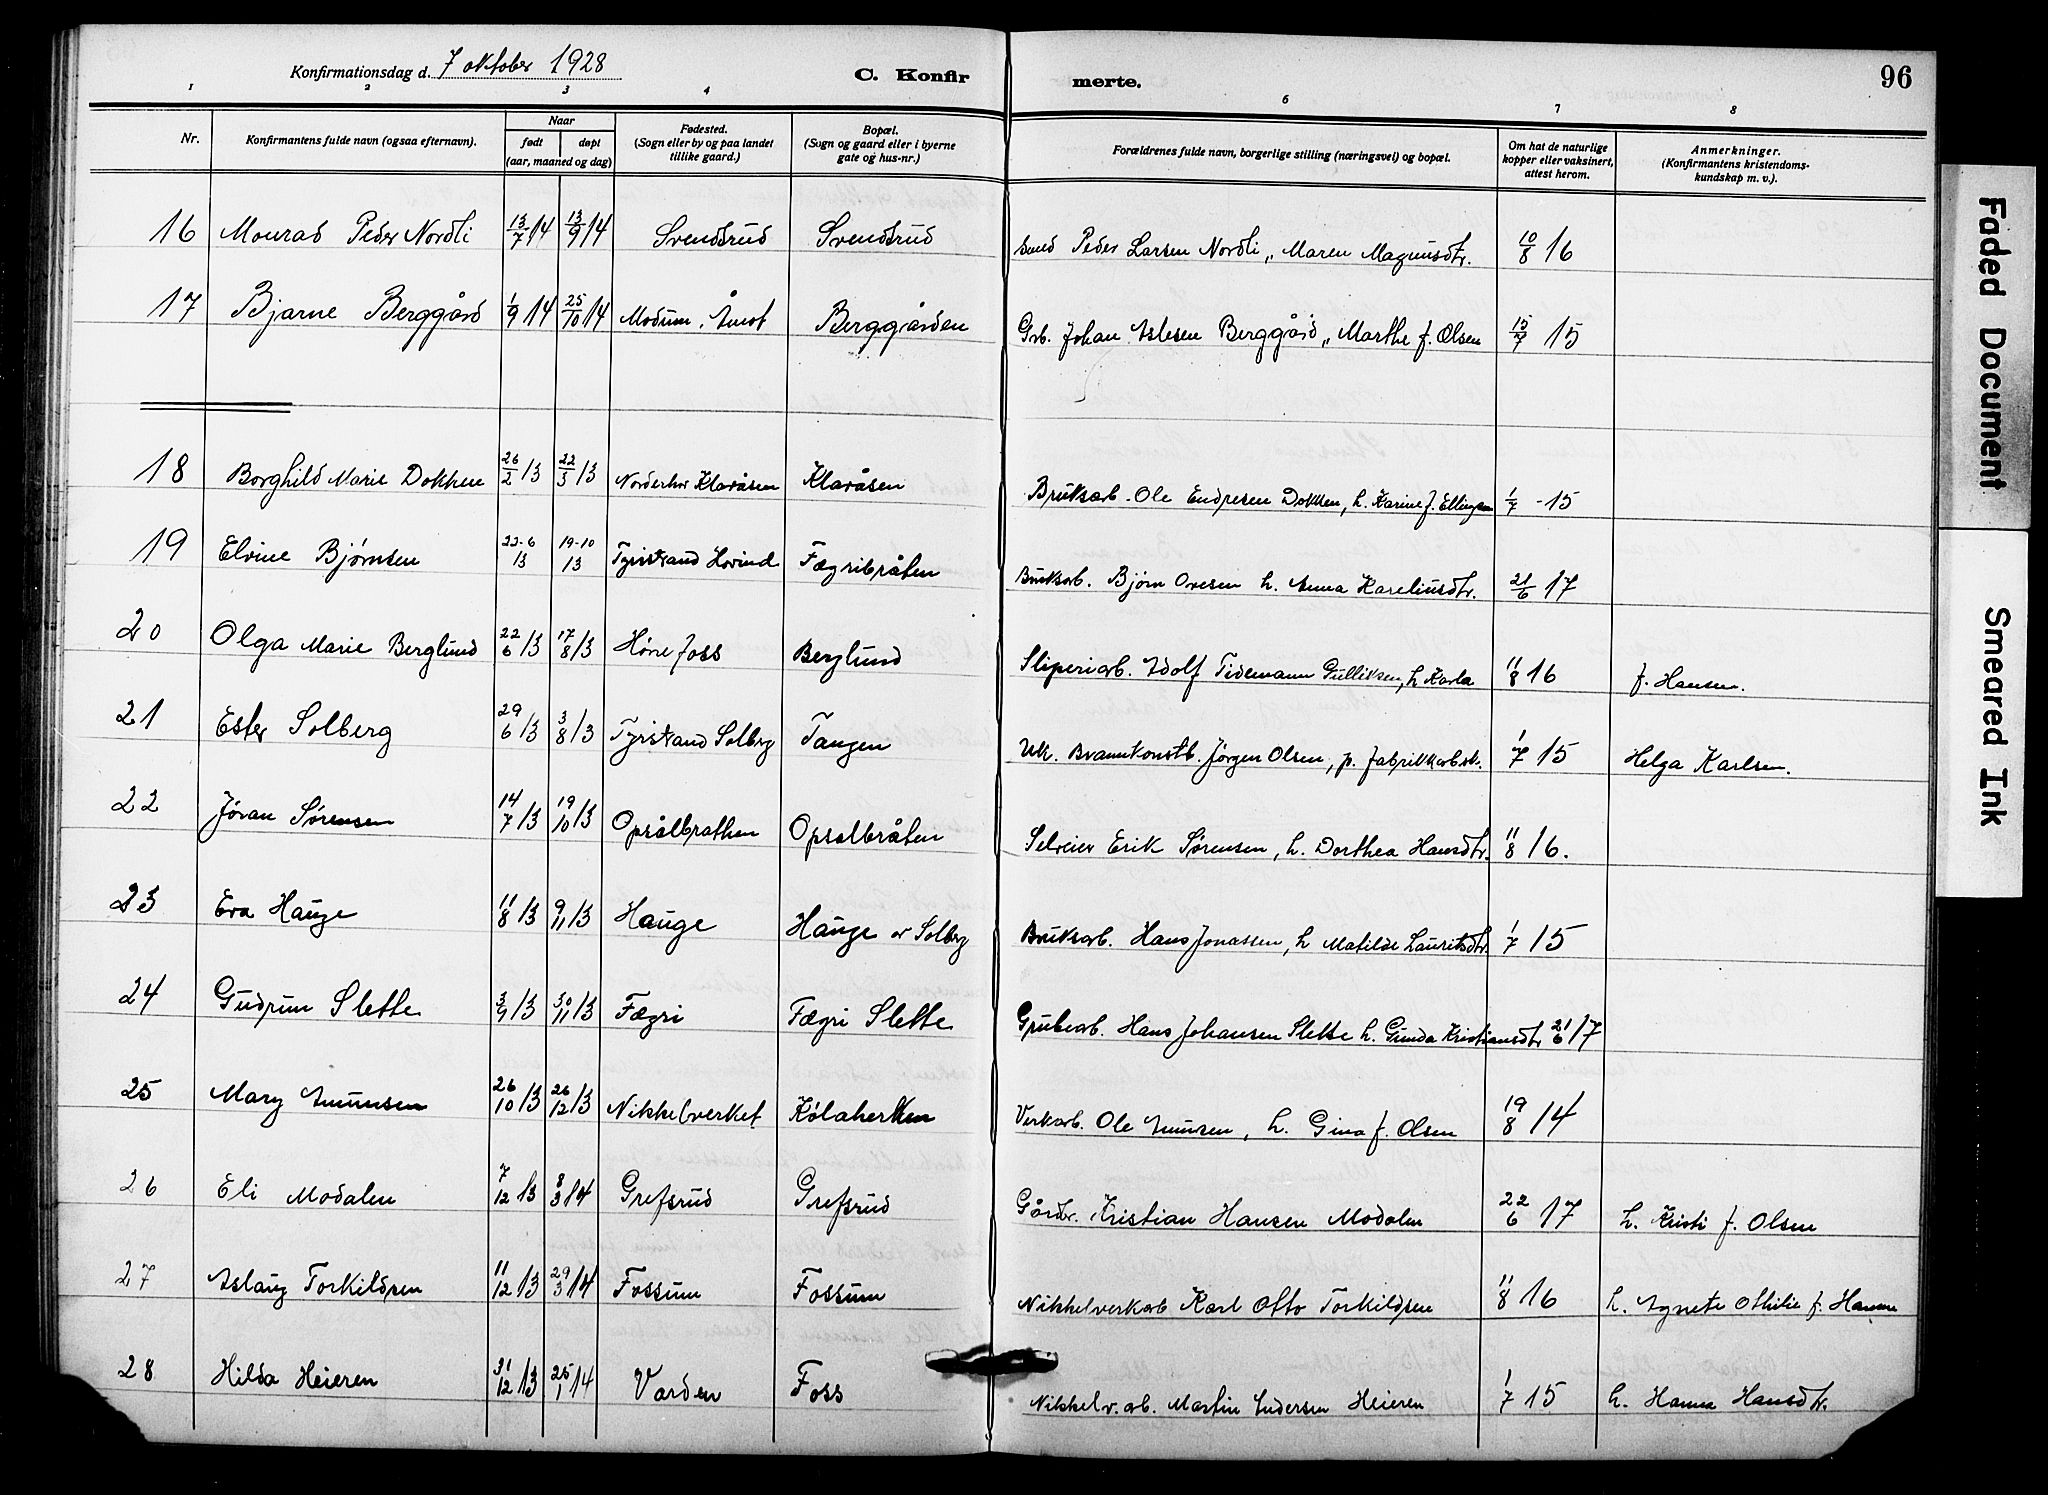 Konfirmationsdag d. 7 oktober 1928 C. Konfirmerte. 96
1 2 3 4 5 6 7 8
Nr. Konfirmantens fulde navn (ogsaa efternavn). Naar født døpt (aar, maaned og dag) Fødested. (Sogn eller by og paa landet tillike gaard.) Bopæl. (Sogn og gaard eller i byerne gate og hus-nr.) Forældrenes fulde navn, borgerlige stilling (næringsvei) og bopæl. Om hat de naturlige kopper eller vaksinert, attest herom. Anmerkninger. (Konfirmantens kristendomskundskap m. v.).
16 Peder Nordli 13/7 14 13/9 14 Svendsrud Svendsrud Peder Larsen Nordli „ Maren Magnusdtr. 10/8 16
17 Bjarne Berggård 1/9 14 25/10 14 Modum, Åmot Berggården Grb. Johan Aslesen Berggård „ Marthe f. Olsen 15/7 15
18 Borghild Marie Dokken 26/2 13 22/3 13 Norderhov Klaråsen Klaråsen Bruksarb. Ole Endresen Dokken, h. Karine f. Ellingsen 1/7 - 15
19 Elvine Bjørnsen 22-6 13 19-10 13 Tyristrand Hovind Fægribråten Bruksarb. Bjørn Ovesen h. Anna Kareliusdtr. 21/6 17
20 Olga Marie Berglund 22/6 13 17/8 13 Hønefoss Berglund Sliperiarb. Adolf Tidemann Gulliksen, h Karla 11/8 16 f. Hansen.
21 Ester Solberg 29/6 13 3/8 13 Tyristrand Solberg Tangen Uk. Brannkonstb. Jørgen Olsen, p. fabrikkarbsk. 1/7 15 Helga Karlsen.
22 Jøran Sørensen 14/7 13 19/10 13 Opsålbrathen Opsalbråten Selveier Erik Sørensen, h. Dorthea Hansdtr. 11/8 16.
23 Eva Hauge 11/8 13 9/11 13 Hauge Hauge av Solberg Bruksarb. Hans Jonassen, h Matilde Lauritsdtr. 1/7 15
24 Gudrun Slette 3/9 13 30/11 13 Fægri Fægri Slette Grubearb. Hans Johansen Slette h. Gunda Kristiansdtr 21/6 17
25 Mary Amundsen 26/10 13 26/12 13 Nikkelverket Kølaherken Verkarb. Ole Amundsen, h. Gina f. Olsen 19/8 14
26 Eli Modalen 7/12 13 8/3 14 Grefsrud Grefsrud Gårdbr. Kristian Hansen Modalen 22/6 17 h. Kristi f. Olsen
27 Aslaug Torkildsen 11/12 13 29/3 14 Fossum Fossum Nikkelverkarb Karl Otto Torkildsen 11/8 16 h. Agnete Othilie f. Hansen
28 Hilda Heieren 31/12 13 25/1 14 Varden Foss Nikkelv.arb. Martin Andersen Heieren 1/7 15 h. Hanna Hansdtr.
Faded Document
Smeared Ink